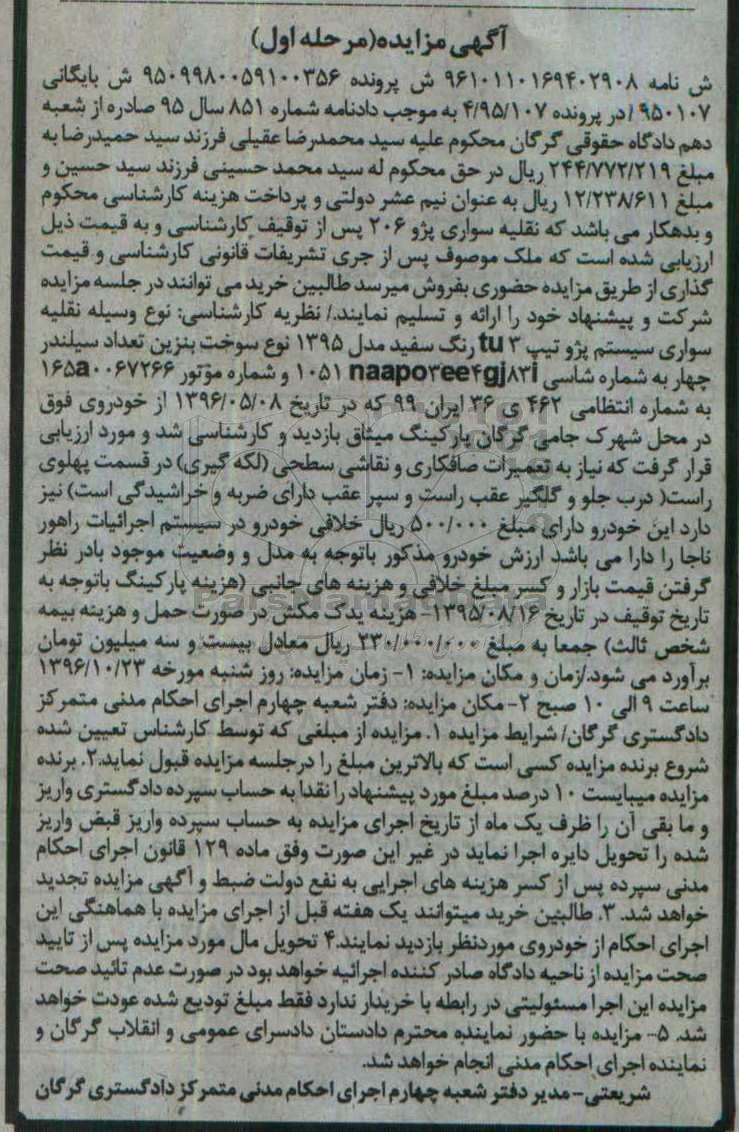 آگهی مزایده(مرحله اول)
ش نامه ۹۶۱۰۱۱۰۱۶۹۴۰۲۹۰۸ ش پرونده ۹۵۰۹۹۸۰۰۵۹۱۰۰۳۵۶ ش بایگانی
۹۵۰۱۰۷ / در پرونده ۴/۹۵/۱۰۷ به موجب دادنامه شماره ۸۵۱ سال ۹۵ صادره از شعبه
دهم دادگاه حقوقی گرگان محکوم علیه سید محمدرضا عقیلی فرزند سید حمیدرضا به
مبلغ ۲۴۴/۷۷۲/۲۱۹ ریال در حق محکوم له سید محمد حسینی فرزند سید حسین و
مبلغ ۱۲/۲۳۸/۶۱۱ ریال به عنوان نیم عشر دولتی و پرداخت هزینه کارشناسی محکوم
و بدهکار می باشد که نقلیه سواری پژو ۲۰۶ پس از توقیف کارشناسی و به قیمت ذیل
ارزیابی شده است که ملک موصوف پس از جری تشریفات قانونی کارشناسی و قیمت
گذاری از طریق مزایده حضوری بفروش میرسد طالبین خرید می توانند در جلسه مزایده
شرکت و پیشنهاد خود را ارائه و تسلیم نمایند./ نظریه کارشناسی: نوع وسیله نقلیه
سواری سیستم پژو تیپ tu ۳ رنگ سفید مدل ۱۳۹۵ نوع سوخت بنزین تعداد سیلندر
چهار به شماره شاسی naapo۳ee۴gj۸۳i ۱۰۵۱ و شماره موتور ۱۶۵a۰۰۶۷۲۶۶
به شماره انتظامی ۴۶۲ ی ۳۶ ایران ۹۹ که در تاریخ ۱۳۹۶/۰۵/۰۸ از خودروی فوق
در محل شهرک جامی گرگان پارکینگ میثاق بازدید و کارشناسی شد و مورد ارزیابی
قرار گرفت که نیاز به تعمیرات صافکاری و نقاشی سطحی (لکه گیری) در قسمت پهلوی
راست( درب جلو و گلگیر عقب راست و سپر عقب دارای ضربه و خراشیدگی است) نیز
دارد این خودرو دارای مبلغ ۵۰۰/۰۰۰ ریال خلافی خودرو در سیستم اجرائیات راهور
ناجا را دارا می باشد ارزش خودرو مذکور باتوجه به مدل و وضعیت موجود بادر نظر
گرفتن قیمت بازار و کسر مبلغ خلافی و هزینه های جانبی (هزینه پارکینگ باتوجه به
تاریخ توقیف در تاریخ ۱۳۹۵/۰۸/۱۶- هزینه یدک مکش در صورت حمل و هزینه بیمه
شخص ثالث) جمعا به مبلغ ۲۳۰/۰۰۰/۰۰۰ ریال معادل بیست و سه میلیون تومان
برآورد می شود./زمان و مکان مزایده: ۱- زمان مزایده: روز شنبه مورخه ۱۳۹۶/۱۰/۲۳
ساعت ۹ الی ۱۰ صبح ۲-مکان مزایده: دفتر شعبه چهارم اجرای احکام مدنی متمرکز
دادگستری گرگان/ شرایط مزایده ۱. مزایده از مبلغی که توسط کارشناس تعیین شده
شروع برنده مزایده کسی است که بالاترین مبلغ را درجلسه مزایده قبول نماید.۲. برنده
مزایده میبایست ۱۰ درصد مبلغ مورد پیشنهاد را نقدا به حساب سپرده دادگستری واریز
و ما بقی آن را ظرف یک ماه از تاریخ اجرای مزایده به حساب سپرده واریز قبض واریز
شده را تحویل دایره اجرا نماید در غیر این صورت وفق ماده ۱۲۹ قانون اجرای احکام
مدنی سپرده پس از کسر هزینه های اجرایی به نفع دولت ضبط و آگهی مزایده تجدید
خواهد شد. ۳. طالبین خرید میتوانند یک هفته قبل از اجرای مزایده با هماهنگی این
اجرای احکام از خودروی موردنظر بازدید نمایند.۴ تحویل مال مورد مزایده پس از تایید
صحت مزایده از ناحیه دادگاه صادر کننده اجرائیه خواهد بود در صورت عدم تائید صحت
مزایده این اجرا مسئولیتی در رابطه با خریدار ندارد فقط مبلغ تودیع شده عودت خواهد
شد. ۵- مزایده با حضور نماینده محترم دادستان دادسرای عمومی و انقلاب گرگان و
نماینده اجرای احکام مدنی انجام خواهد شد.
شریعتی- مدیر دفتر شعبه چهارم اجرای احکام مدنی متمرکز دادگستری گرگان